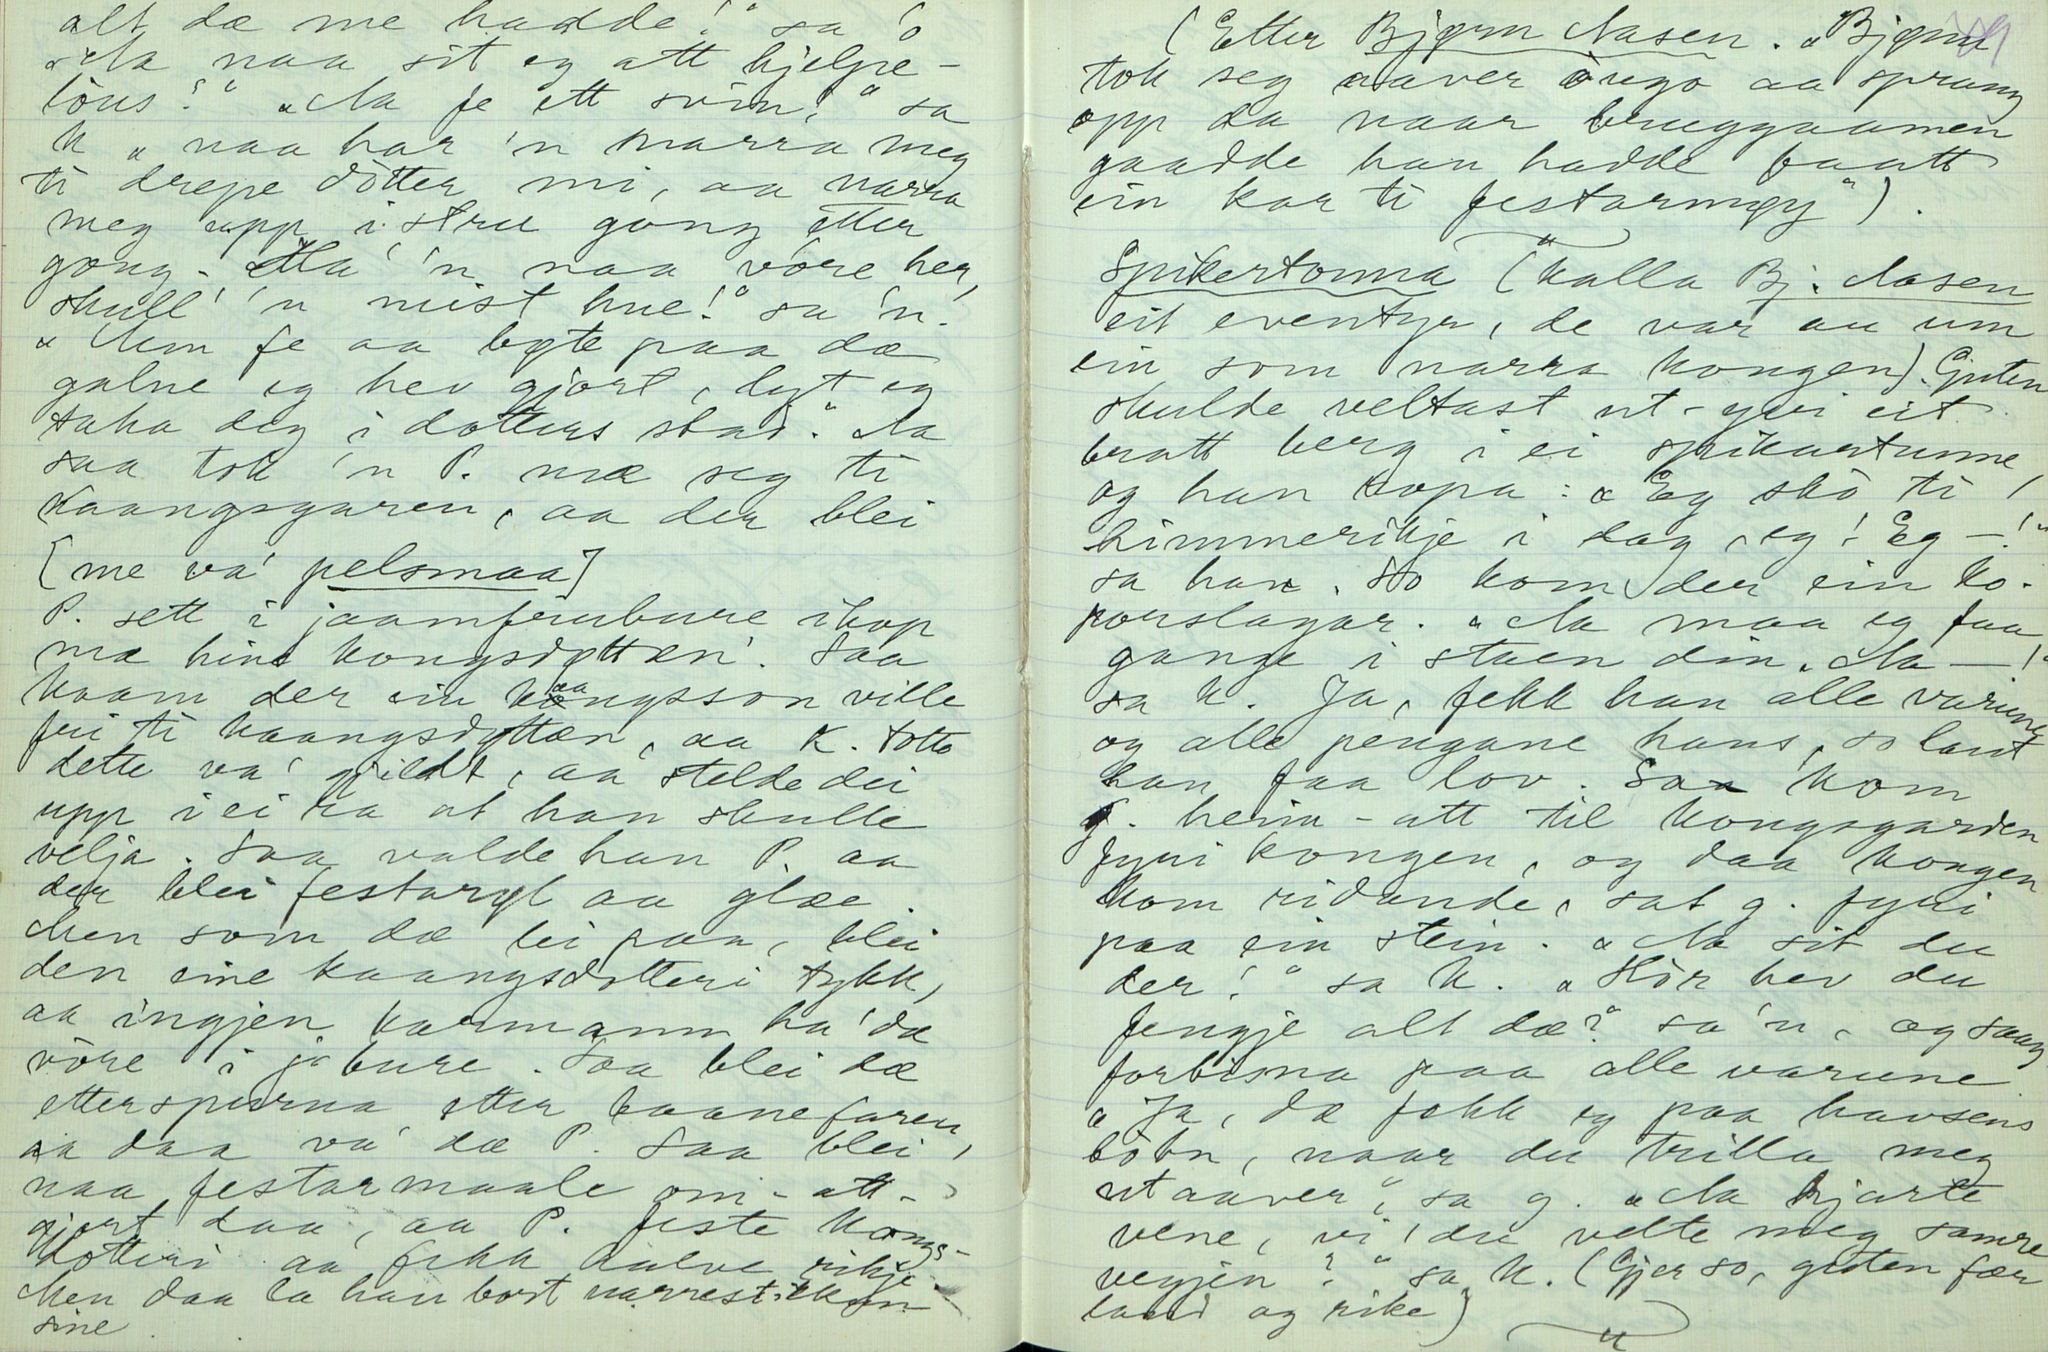 alt dæ me hadde!" sa 'o
"Aa naa sit eg att hjelpe-
lòus!" "Aa fe ett svin!" sa
K "naa har 'n narra meg
ti drepe dòtter mi, aa narra
meg upp i stru gong etter
gong. Ha' 'n naa vòre her,
skull' 'n mist hue!" sa 'n.
"Men fe aa bøte paa dæ
galne eg hev gjort, lyt eg
taka deg i dotters stad." Aa
saa tok 'n P. mæ seg ti
kaangsgaren, aa der blei
[me va' pelsmaa]
P. sett i jaamfrubure ihop
mæ hine kongsdøttæn'. Saa
kaam der ein kaangsson ville
fri ti kaangsdøttæn, aa K. totte
dette va' gjildt, aa stelde dei
upp i ei ra at han skulle
velja. Saa valde han P. aa
der blei festarøl aa glæe.
Men som dæ lei paa, blei
den eine kaangsdotteri tykk,
aa ingjen karmann ha' da
vòre i j bure. Saa blei dæ
etterspurna etter baanefaren,
aa daa va' dæ P. Saa blei
naa festarmaale om-att-
gjort daa, aa P. feste kongs-
dotteri aa fekk halve rikje.
Men daa la han bort narrestikkun
sine.
(Etter Bjørn Aasen. "Bjørnen
tok seg aaver òugo aa sprang
opp da naar bruggaamen
gaadde han hadde faatt
ein kar ti festarmøy").
Spikertonna (kalla Bj. Aasen
eit eventyr, de var au um
ein som narra kongen). Guten
skulde veltast ut-yvi eit
bratt berg i ei spikartunne,
og han ropa: "Eg skò ti
himmerikje i dag, eg! Eg —!"
sa han. So kom der ein ko-
parslagar. "Aa maa eg faa
gange i staen din. Aa —!"
sa k. Ja, fekk han alle varune
og alle pengane hans, so laut
han faa lov. Saa kom
g. heim-att til kongsgarden
fyri kongen, og daa kongen
kom ridande, sat g. fyri
paa ein stein. "Aa sit du
der!" sa K. "Hòr hev du
fengje alt dæ?" sa 'n, og saag
forbisna paa alle varune
"Ja, dæ fekk eg paa havsens
bòtn, naar du trilla meg
ut aaver", sa g. "Aa hjarte
vene, vi' du velte meg samre
vegjen?" sa K. (Gjer so, guten fær
land og rike)